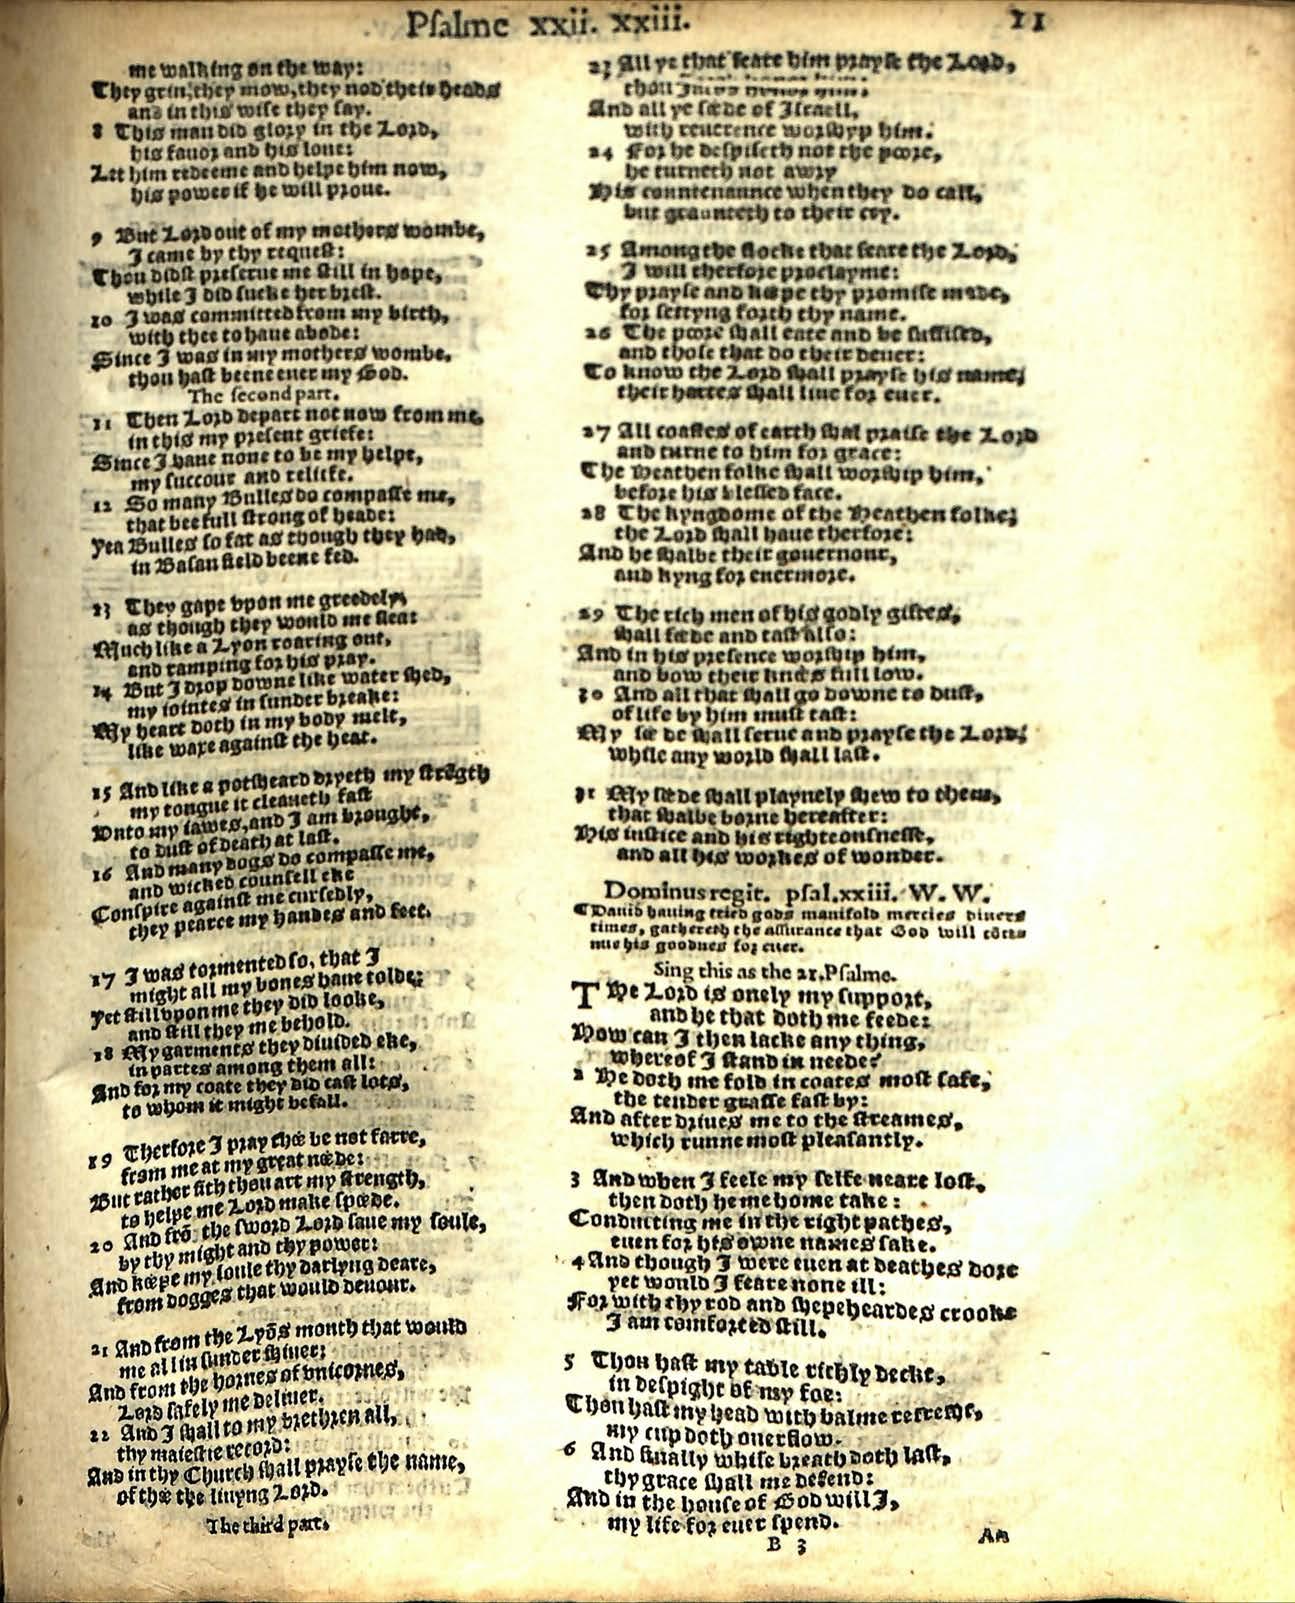 Psalme xxii. xxiii. 11
me walking on the way:
They grin, they mow, they nod their heads
and in this wise they say.
8 This man did glory in the Lord,
his fauor and his loue:
Let him redeeme and helpe him now,
his power if he will proue.
9 But Lord out of my mothers wombe,
I came by thy request:
Thou didst preserue me still in hope,
while I did sucke her brest.
10 I was committed from my birth,
with thee to haue abode:
Since I was in my mothers wombe,
thou hast beene euer my God.
The second part.
11 Then Lord depart not now from me,
in this my present griefe:
Since I haue none to be my helpe,
my succour and reliefe.
12 So many Bulles do compasse me,
that bee full strong of heade:
Yea Bulles so fat as though they had,
in Basan field beene fed.
13 They gape vpon me greedely,
as though they would me slea:
Much like a Lyon roaring out,
and ramping for his pray.
14 But I drop downe like water shed,
my iointes in sunder breake:
My heart doth in my body melt,
like waxe against the heat.
15 And like a potsheard dryeth my strẽgth
my tongue it cleaueth fast
Vnto my iawes, and I am brought,
to dust of death at last.
16 And many dogs do compasse me,
and wicked counsell eke
Conspire against me cursedly,
they pearce my handes and feet.
17 I was tormented so, that I
might all my bones haue tolde:
Yet still vpon me they did looke,
and still they me behold.
18 My garments they diuided eke,
in partes among them all:
And for my coate they did cast lots,
to whom it might befall.
19 Therfore I pray thee be not farre,
from me at my great neede:
But rather sith thou art my strength,
to helpe me Lord make speede.
20 And frõ the sword Lord saue my soule,
by thy might and thy power:
And keepe my soule thy darlyng deare,
from dogges that would deuour.
21 And from the Lyõs mouth that would
me all in sunder shiuer:
And from the hornes of vnicornes,
Lord safely me deliuer.
22 And I shall to my brethren all,
thy maiestie record:
And in thy Church shall prayse the name,
of thee the liuyng Lord.
The third part.
23 All ye that feare him prayse the Lord,
thou Jacob honor him:
And all ye seede of Israell,
with reuerence worshyp him.
24 For he despiseth not the poore,
he turneth not awry
His countenaunce when they do call,
but graunteth to their cry.
25 Among the flocke that feare the Lord,
I will therfore proclayme:
Thy prayse and keepe thy promise made,
for settyng forth thy name.
26 The poore shall eate and be suffised,
and those that do their deuer:
To know the Lord shall prayse his name,
their hartes shall liue for euer.
27 All coastes of earth shal praise the Lord
and turne to him for grace:
The Heathen folke shall worship him,
before his blessed face.
28 The kyngdome of the Heathen folke,
the Lord shall haue therfore:
And he shalbe their gouernour,
and kyng for euermore.
29 The rich men of his godly giftes,
shall feede and tast also:
And in his presence worship him,
and bow their knees full low.
30 And all that shall go downe to dust,
of life by him must tast:
My seede shall serue and prayse the Lord,
while any world shall last.
31 My seede shall playnely shew to them,
that shalbe borne hereafter:
His iustice and his righteousnesse,
and all his workes of wonder.
Dominus regit. psal. xxiii. W. W.
¶ Dauid hauing tried gods manifold mercies diuers
times, gathereth the assurance that God will cõti-
nue his goodnes for euer.
Sing this as the 21. Psalme.
THe Lord is onely my support,
and he that doth me feede:
How can I then lacke any thing,
whereof I stand in neede?
2 He doth me fold in coates most safe,
the tender grasse fast by:
And after driues me to the streames,
which runne most pleasantly.
3 And when I feele my selfe neare lost,
then doth he me home take:
Conducting me in the right pathes,
euen for his owne names sake.
4 And though I were euen at deathes dore
yet would I feare none ill:
For with thy rod and shepeheardes crooke
I am comforted still.
5 Thou hast my table richly deckt,
in despight of my foe:
Thou hast my head with balme refresht,
my cup doth ouerflow.
6 And finally while breath doth last,
thy grace shall me defend:
And in the house of God will I,
my life for euer spend.
B 3 An